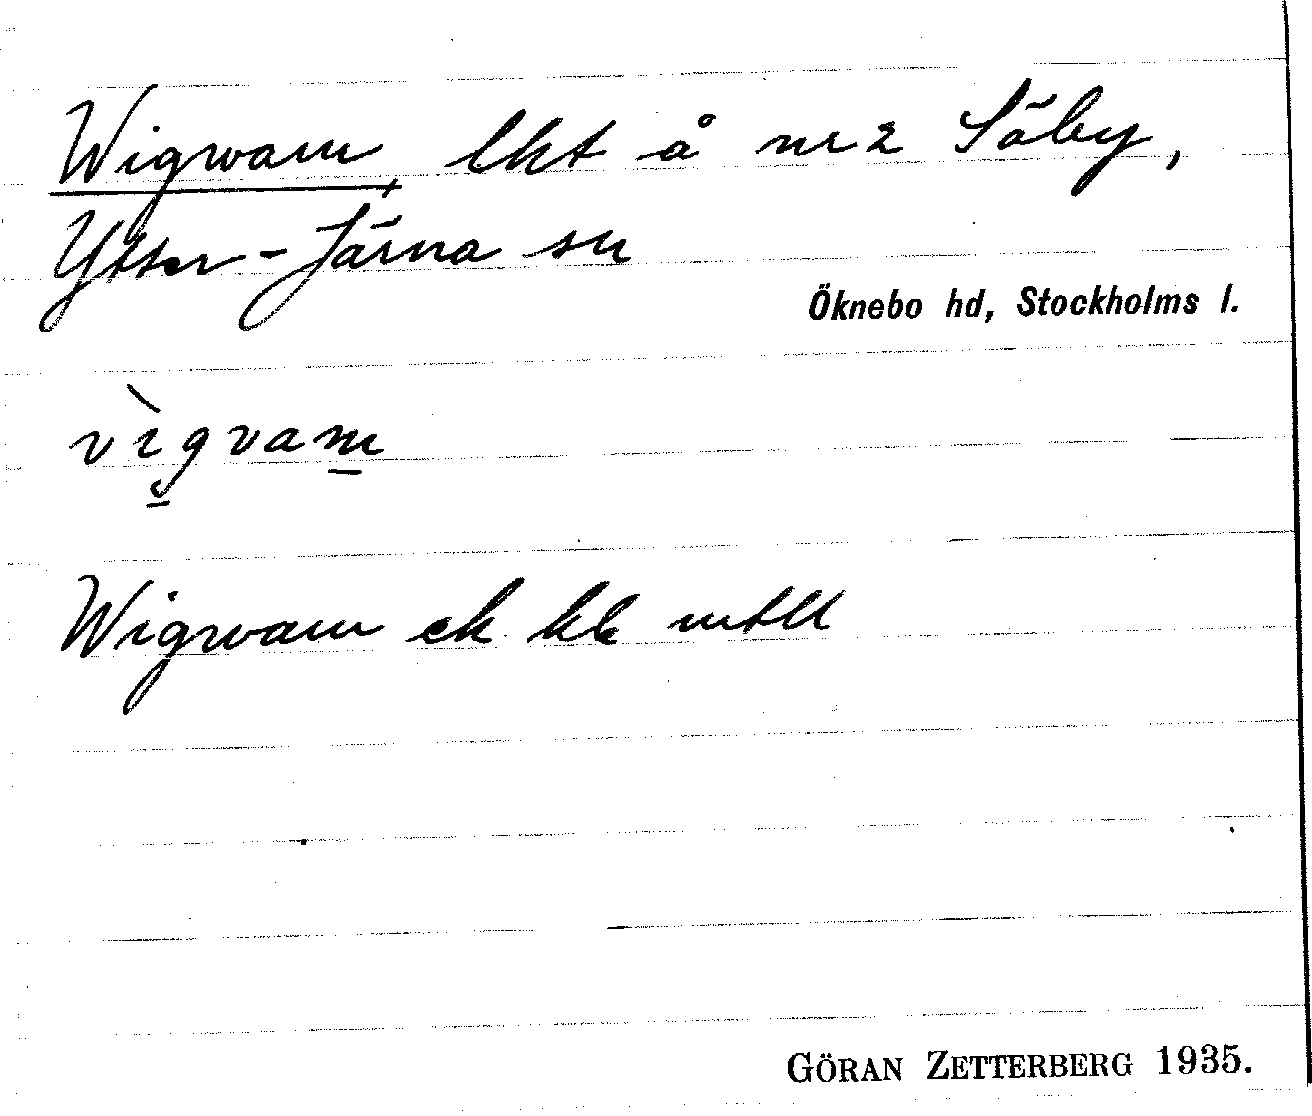 Wigwam, lht å nr 2 Säby,
Ytter-Järna sn
Öknebo hd, Stockholms l.
vìgvam
Wigwam ek kk mtll
GÖRAN ZETTERBERG 1935.